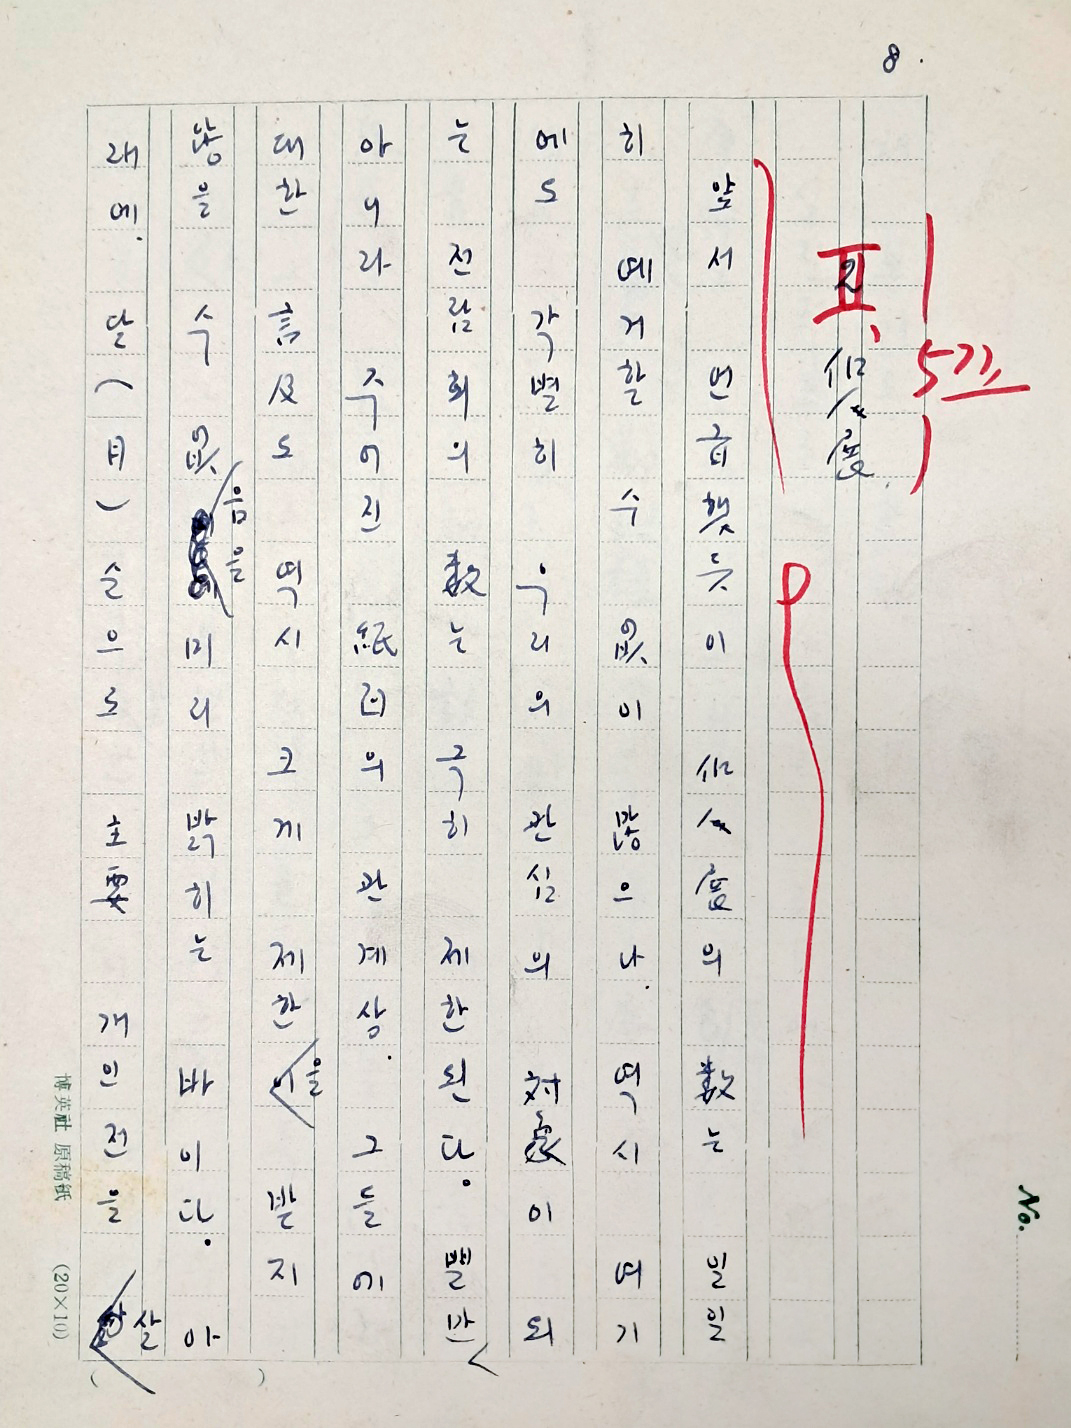 8.
5기
II、個人展
앞서 언급했듯이 個人展의 数는 일일
히 예거할 수 없이 많으나. 역시 여기
에도 각별히 우리의 관심의 対象이 되
는 전람회의 数는 극히 제한된다. 뿐만
아니라 주어진 紙面의 관계상. 그들에
대한 言及도 역시 크게 제한을 받지
않을 수 없음을 미리 밝히는 바이다. 아
래에. 달(月)순으로 主要 개인전을 살
博英社 原稿紙 (20×10)
No.